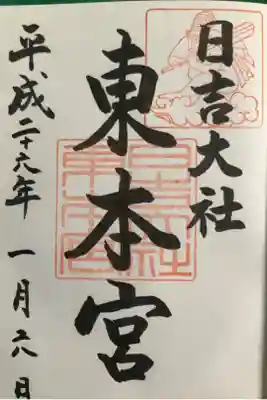 日吉大社
東本宮
平成二十六年 一月二八日